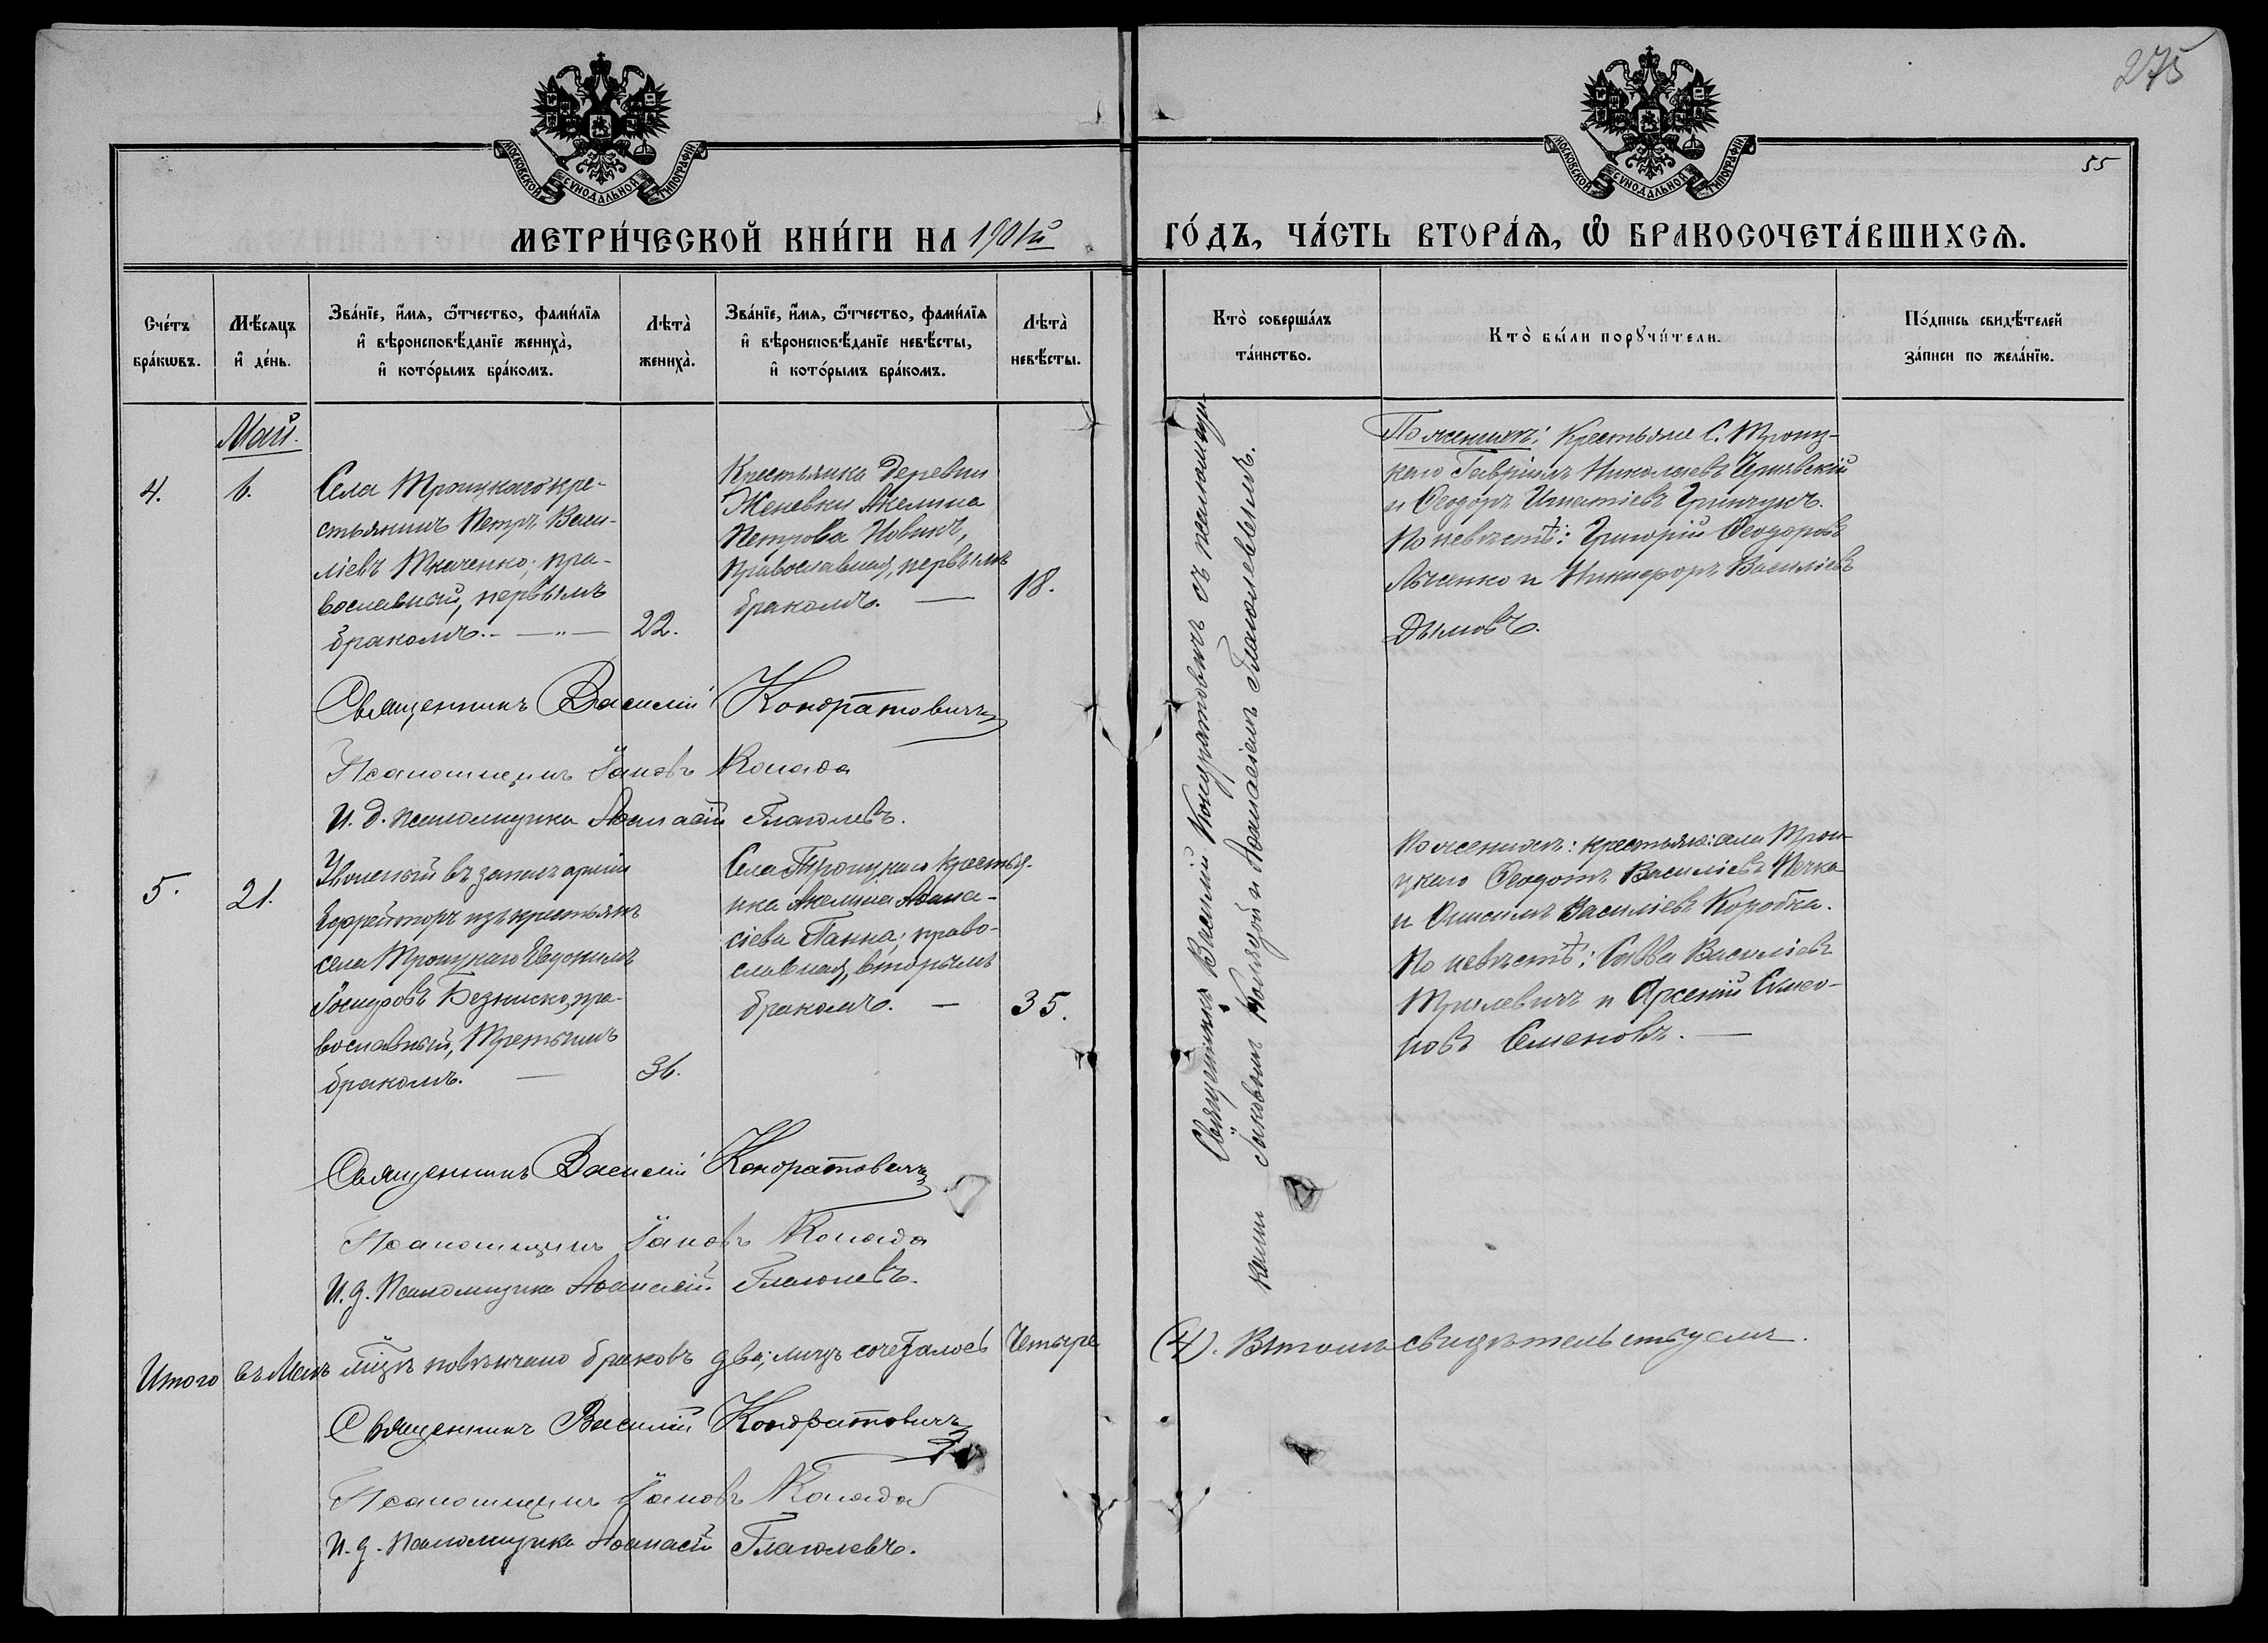 275
55
МОСКОВСКОЙ СѴНОДАЛЬНОЙ ТИПОГРАФІИ
МОСКОВСКОЙ СѴНОДАЛЬНОЙ ТИПОГРАФІИ
МЕТРИ́ЧЕСКОЙ КНИ́ГИ НА 1901й
ГО́ДЪ, ЧА́СТЬ ВТОРА́Ѧ, Ѡ҆ БРАКОСОЧЕТА́ВШИХСѦ.
Сче́тъ бра́кѡвъ.
Мѣ́сѧцъ и҆ де́нь.
Зва́нїе, и҆́мѧ, ѻ҆́тчество, фами́лїѧ
и҆ вѣроисповѣ́данїе жениха̀,
и҆ кото́рымъ бра́комъ.
Лѣта̀ жениха̀.
Зва́нїе, и҆́мѧ, ѻ҆́тчество, фами́лїѧ
и҆ вѣроисповѣ́данїе невѣ́сты,
и҆ кото́рымъ бра́комъ.
Лѣта̀ невѣ́сты.
Кто̀ соверша́лъ
та́инство.
Кто̀ бы́ли порꙋчи́тели.
По́дпись свидѣ́телей
за́писи по жела́нїю.
Май.
4.
6.
Села Троицкаго кре-
стьянинъ Петръ Васи-
ліевъ Ткаченко; пра-
вославный, первымъ
бракомъ. — „ —
22.
Крестьянка деревни
Женевки Акелина
Петрова Новикъ,
православная, первымъ
бракомъ. —
18.
По женихѣ: Крестьяне С. Троиц-
каго Гавріилъ Николаевъ
и Ѳеодоръ Игнатіевъ Гринчукъ.
По невѣстѣ: Григорій Ѳеодоровъ
и Никифоръ Василіевъ
Дымовъ.
Священникъ Василій Кондратовичъ
Псаломщикъ Іаковъ Коляда
И. д. псаломщика Аѳанасій Глаголевъ.
Священникъ Василій Кондратовичъ съ псаломщи-
ками Іаковомъ Колядой и Аѳанасіемъ Глаголевымъ.
5.
21.
Уволенный въ запасъ арміи
Ефрейторъ изъ крестьянъ
села Троицкаго Евдокимъ
пра-
вославный, третьимъ
бракомъ. —
36.
Села Троицкаго крестья-
нка Акелина Аѳана-
сіева Панна; право-
славная, вторымъ
бракомъ. —
35.
По женихѣ: крестьяне: села Трои-
цкаго Ѳеодотъ Василіевъ Печка
и Онисимъ Василіевъ Коробка.
По невѣстѣ: Савва Василіевъ
и Арсеній Симео-
новъ Семеновъ. —
Священникъ Василій Кондратовичъ
Псаломщикъ Іаковъ Коляда
И. д. Псаломщика Аѳанасій Глаголевъ.
Итого въ Маѣ мѣцѣ повѣнчано браковъ два; лицъ сочеталось Четыре
(4). Въ томъ свидѣтельствуемъ.
Священникъ Василій Кондратовичъ
Псаломщикъ Іаковъ Коляда
И. д. Псаломщика Аѳанасій Глаголевъ.